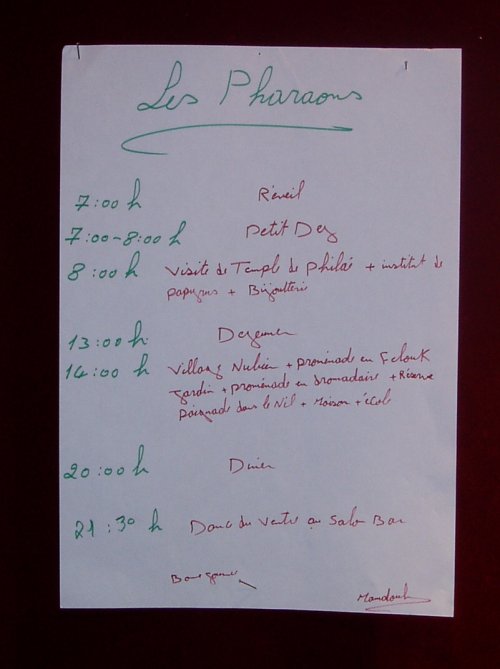 Les Pharaons
7:00 h Réveil
7:00-8:00 h Petit Dej
8:00 h Visite de Temple de Philaé + institut de
papyrus + Bijoutterie
13:00 h Dejeuner
14:00 h Village Nubien + promenade en Felouk
Jardin + promenade en dromadaire + Réserve
baignade dans le Nil + Maison + école
20:00 h Diner
21:30 h Danse du Ventre au Salon Bar
Mamdouh